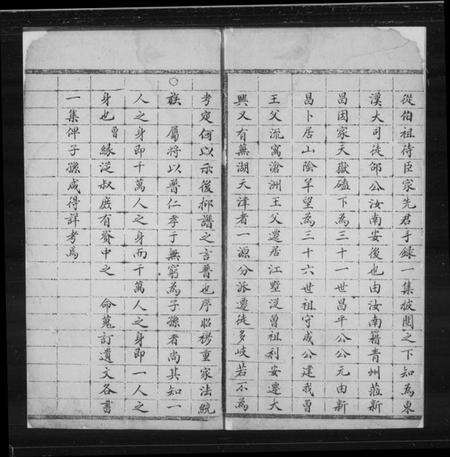 從伯祖待臣家先君手錄一集披閱之下知為東
漢大司徒邵公汝南安後也由汝南籍青州蒞新
昌因家天嶽磕下為三十一世昌平公公元由新
昌卜居山陰單望為三十六世祖宇成公建我曾
王父流寓滄洲王父遷居江墅從曾祖利安遷大
興又有蕪湖天津者一源分派遷徒多岐若不為
考定何以示後抑譜之言普也序昭穆重家法統
族屬將以普仁孝于無窮為子孫者尚其知一
人之身即千萬人之身而千萬人之身即一人之
身也曾緣從叔庭有聲中之命蒐訂遺文各書
一集俾子孫咸得詳考為